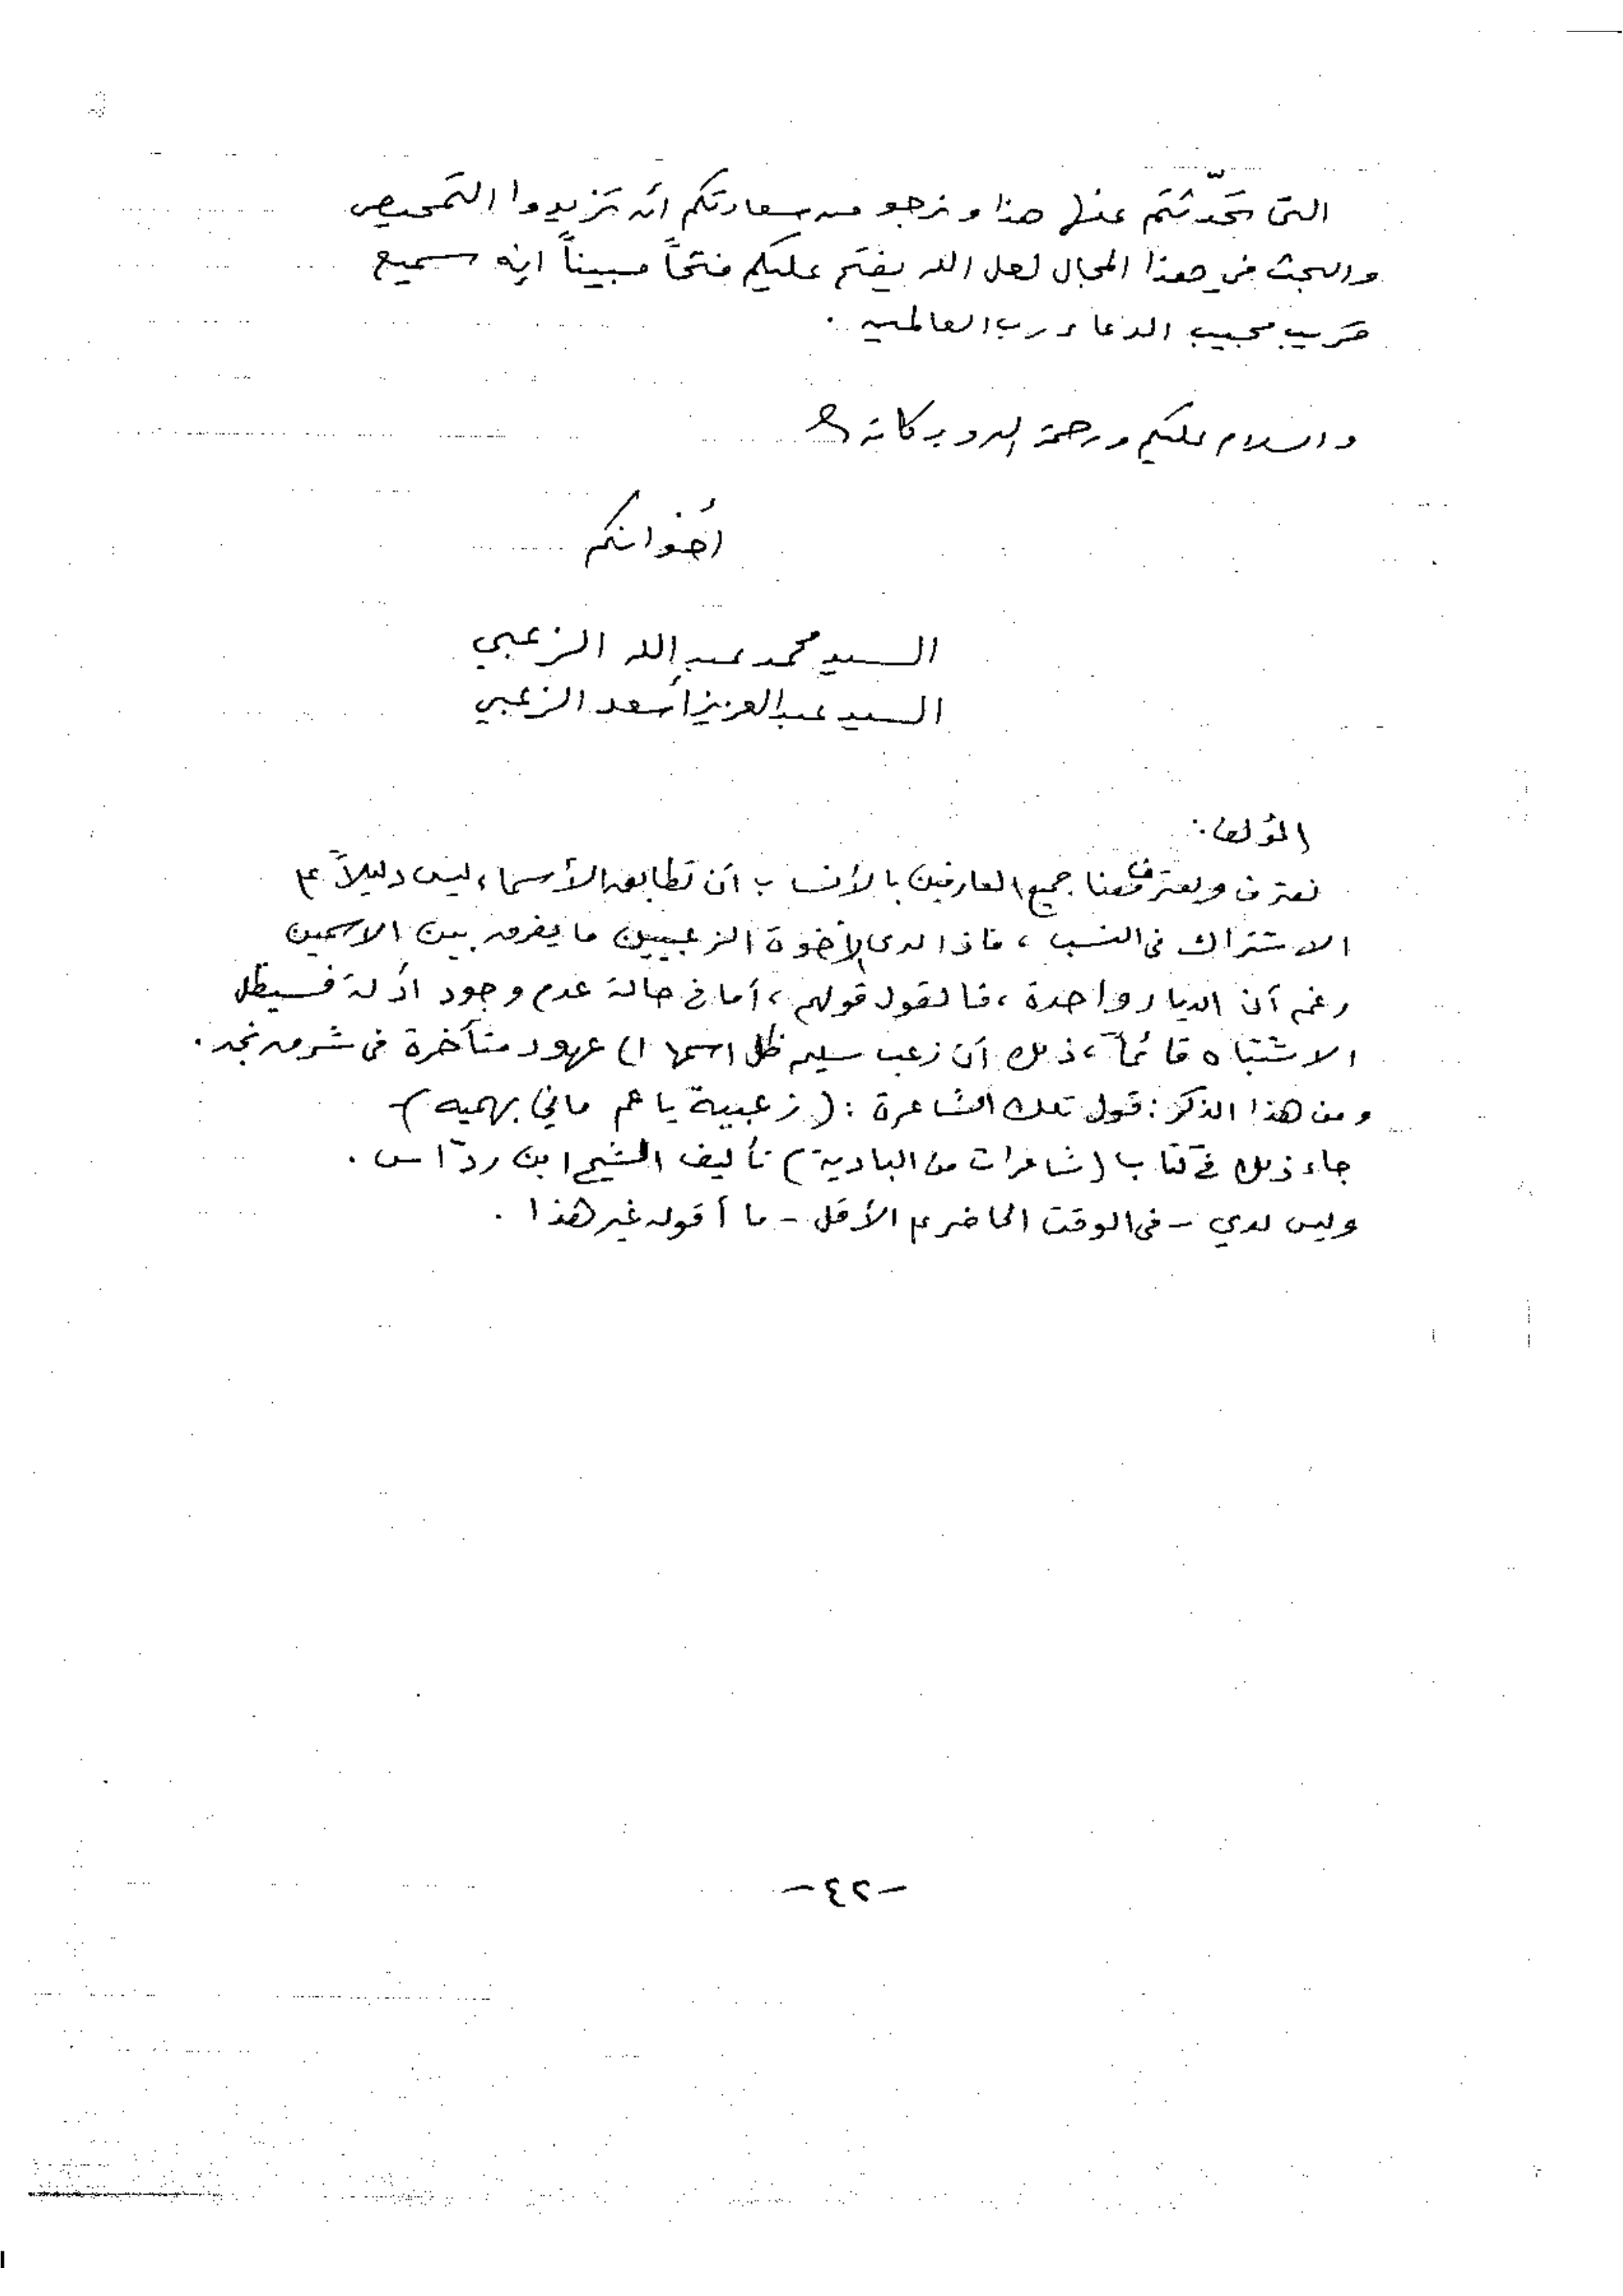 التى تحدّثتم عنها هذا و نرجو من سعادتكم أن تزيدوا التمحيص
والبحث في هذا المجال لعل الله يفتح عليكم فتحاً مبيناً انه سميع
قريب مجيب الدعاء رب العالمين .
والسلام عليكم ورحمة الله وبركاته
أخوانكم
السيد محمد عبدالله الزعبي
السيد عبدالعزيز أسعد الزعبي
المؤلف :
نعترف ويعترف معنا جميع العارفين بالأنساب أن تطابق الأسماء ليس دليلاً على
الاشتراك في النسب ، فاذا لدى الإخوة الزعبيين ما يفرق بين الاسمين
رغم أن الديار واحدة ، فالقول قولهم ، أما في حالة عدم وجود أدلة فسيظل
الاشتباه قائماً ، ذلك أن زعب سليم ظل اسمها الى عهود متأخرة في شرق نجد .
ومن هذا الذكر : قول تلك الشاعرة : ( زعبية يا عم ماني بهميه )
جاء ذلك في كتاب ( شاعرات من البادية ) تأليف الشيخ ابن ردّاس .
وليس لدي - في الوقت الحاضر على الأقل - ما أقوله غير هذا .
- ٢٤ -